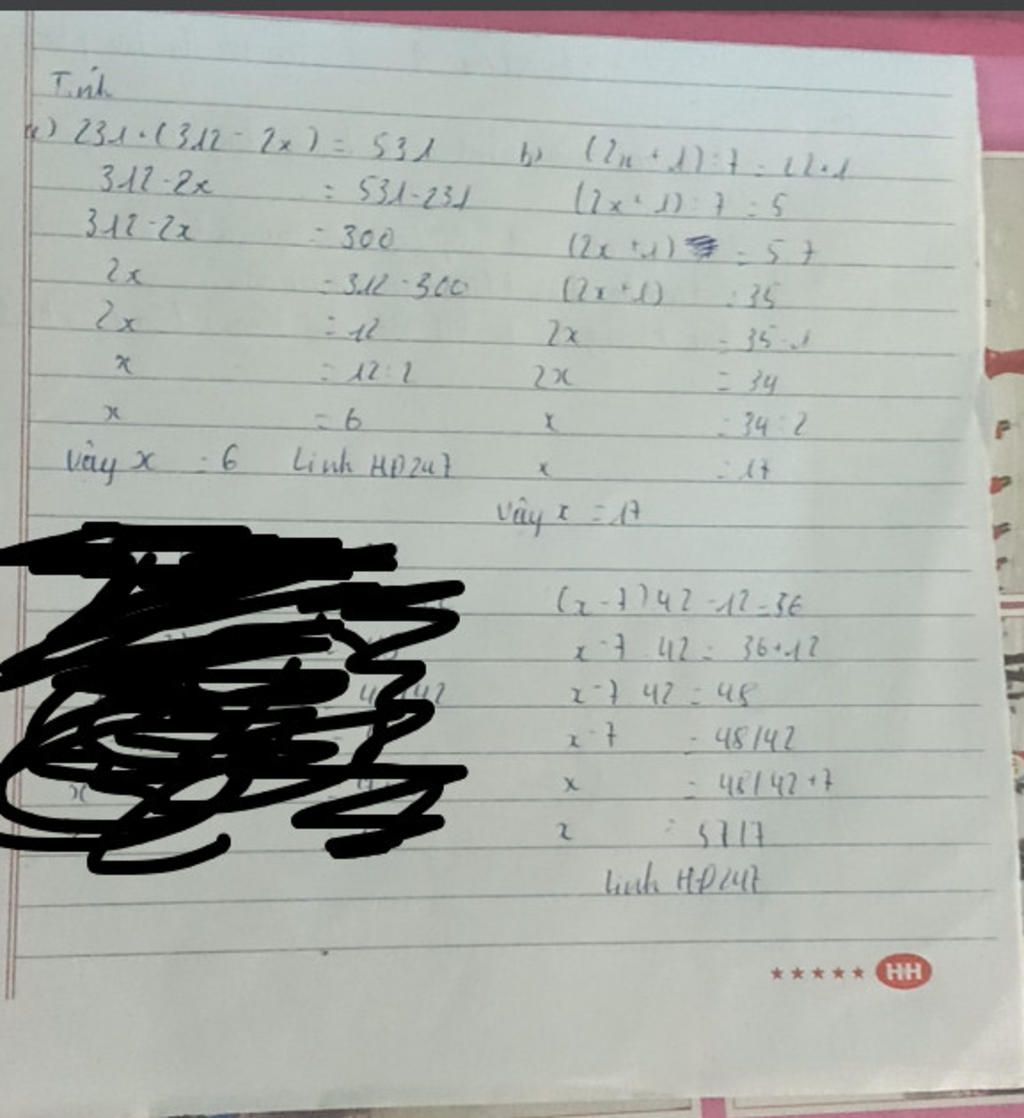 Tính
a) 231 + (312 - 2x) = 531
312 - 2x = 531 - 231
312 - 2x = 300
2x = 312 - 300
2x = 12
x = 12 : 2
x = 6
Vậy x = 6 Linh HĐ247
b) (2x + 1) : 7 = +1
(2x + 1) : 7 = 5
(2x + 1) = 5 7
(2x + 1) = 35
2x = 35 - 1
2x = 34
x = 34 : 2
x = 17
Vậy x = 17
(x - 7) 42 - 12 = 36
x - 7 42 = 36 + 12
x - 7 42 = 48
x - 7 = 48/42
x = 48/42 + 7
x = 57/7
Linh HĐ247
HH